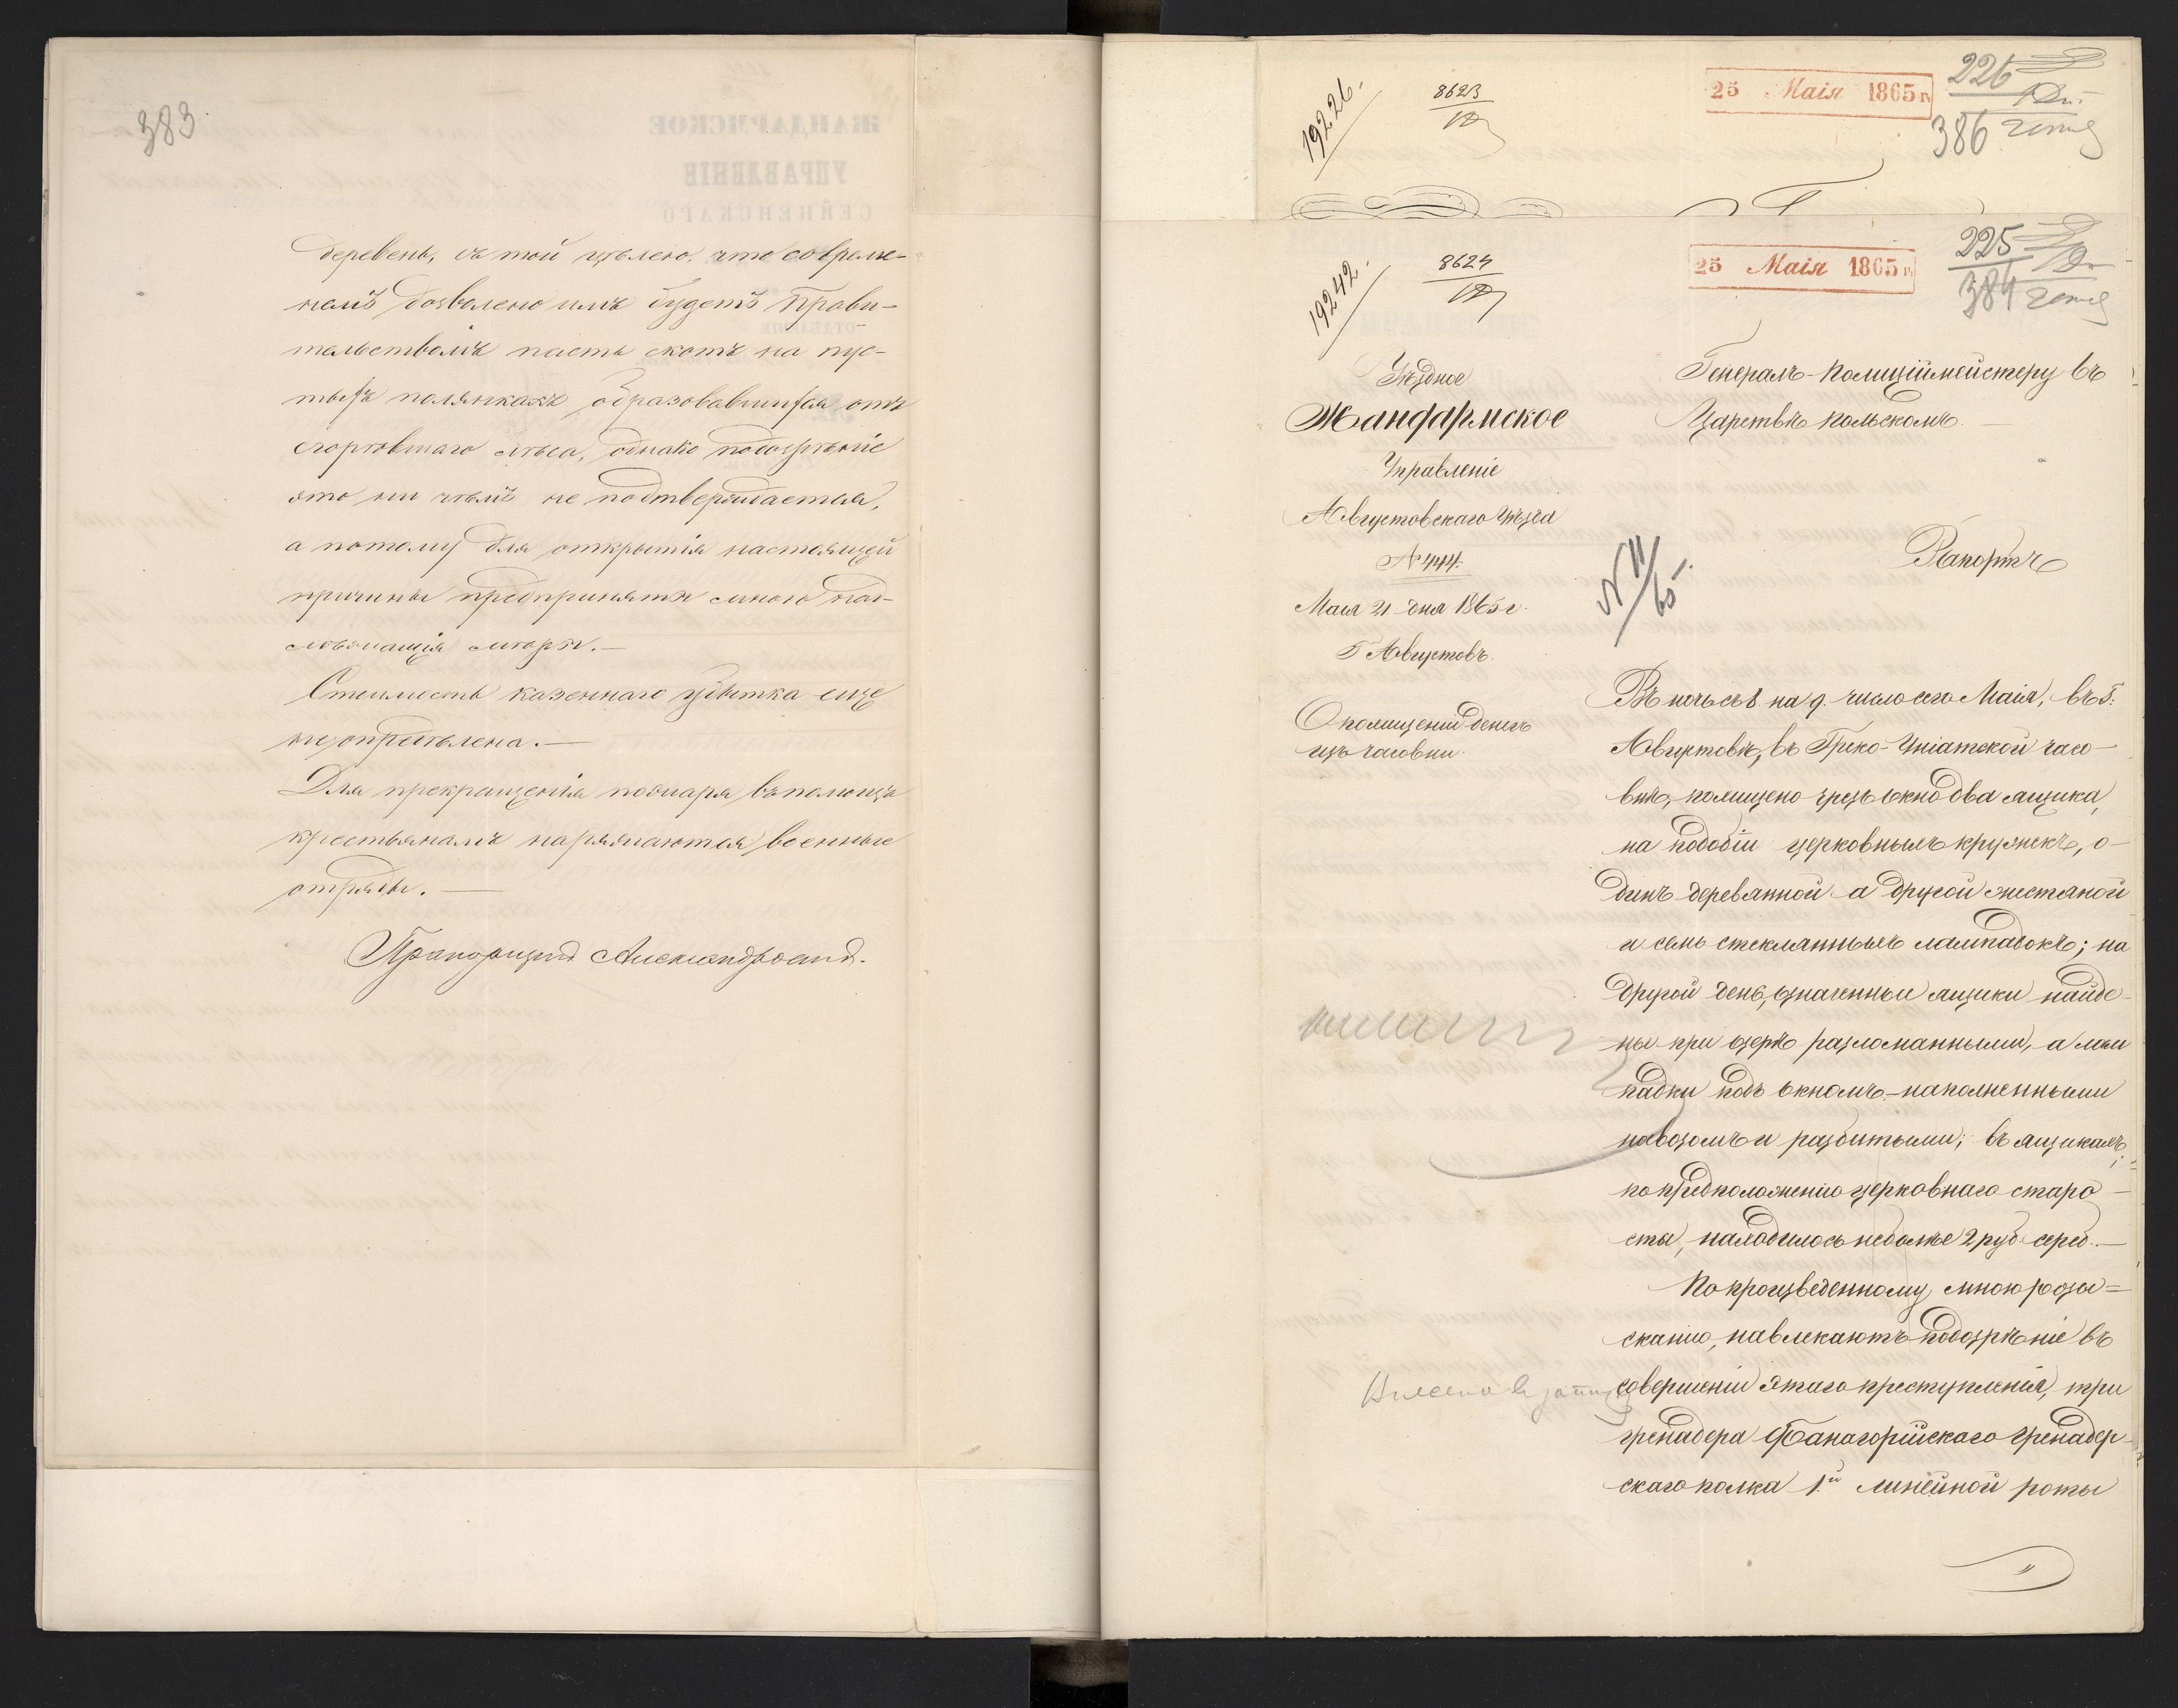 383
деревень, съ той цѣлею, что современемъ
немъ дозволено имъ будетъ Прави-
тельствомъ пасть скотъ на пус-
тыхъ полянкахъ образовавшихся отъ
сгорѣвшаго лѣса, однако подозрѣніе
это ни чѣмъ не подтверждается,
а потому для открытія настоящей
причины предприняты мною над-
лежащія мѣры.—
Стоимость казеннаго убытка еще
не опредѣлена.—
Для прекращенія пожара въ помощь
крестьянамъ наряжаются военные
отряды.—
Прапорщикъ
19226.
8623
25 Маія 1865 г.
226
386
19242.
8624
25 Маія 1865 г.
225
384
Уѣздное
Жандармское
Управленіе
Августовскаго Уѣзда
№ 444.
Маія 21 дня 1865 г.
Г. Августовъ.
О похищеніи денегъ
изъ часовни.
Генералъ-Полиціймейстеру въ
Царствѣ Польскомъ.—
№ 11/65
Рапортъ
Въ ночь съ 8 на 9 число сего Маія, въ Г.
Августовѣ, въ Греко-Уніатской часо-
внѣ, похищено чрезъ окно два ящика,
на подобіи церковныхъ кружекъ, о-
динъ деревянной а другой жестяной
и семь стеклянныхъ лампадокъ; на
другой день, означенныи ящики найде-
ны при озерѣ разломанными, а лам
падки подъ окномъ-наполненными
навозомъ и разбитыми; въ ящикахъ,
по предположенію церковнаго старо-
сты, находилось не болѣе 2 руб. сереб.—
По произведенному мною розы=
сканію, навлекаютъ подозрѣніе въ
совершеніи этаго преступленія, три
гренадера Фанагорійскаго Гренадер-
скаго полка 1й линѣйной роты